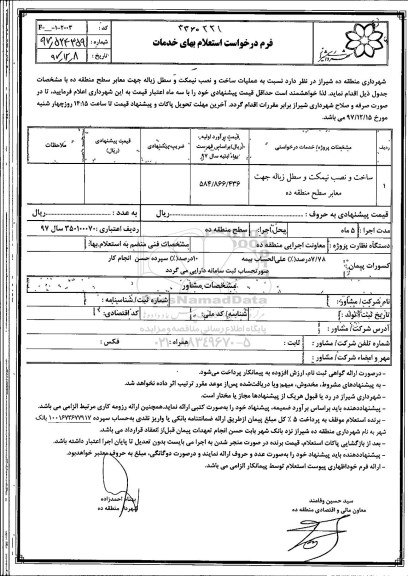 ۳۳۶۰۲۲۱
فرم درخواست استعلام بهای خدمات
کد : F-۰۱-۰۲۰۰۳
شماره : ۹۷٫۵۲۴۳۵۹
۹۷٫۱۲٫۸
شهرداری منطقه ده شیراز در نظر دارد نسبت به عملیات ساخت و نصب نیمکت و سطل زباله جهت معابر سطح منطقه ده با مشخصات
جدول ذیل اقدام نماید. لذا خواهشمند است حداقل قیمت پیشنهادی خود را با سه ماه اعتبار قیمت به این شهرداری اعلام فرمایید، تا در
صورت صرفه و صلاح شهرداری شیراز برابر مقررات اقدام گردد. آخرین مهلت تحویل پاکات و پیشنهاد قیمت تا ساعت ۱۴:۱۵ روز چهار شنبه
مورخ ۹۷/۱۲/۱۵ می باشد.
ردیف مشخصات پروژه/ خدمات درخواستی قیمت برآورد اولیه (ریال) براساس فهرست بهاء ابنیه سال ۹۷ ضریب پیشنهادی قیمت پیشنهادی (ریال) ملاحظات
۱ ساخت و نصب نیمکت و سطل زباله جهت معابر سطح منطقه ده ۵۸۴/۸۶۶/۴۳۶
قیمت پیشنهادی به حروف : ریال به عدد : ریال
مدت اجرا: ۵ ماه محل اجرا: سطح منطقه ده ردیف اعتباری: ۳۵۰۱۰۰۷۰ سال ۹۷
دستگاه نظارت پروژه : معاونت اجرایی منطقه ده مشخصات فنی منضم به استعلام بها:
کسورات پیمان: ۷/۷۸درصد(٪) علی‌الحساب بیمه ۱۰درصد(٪) سپرده حسن انجام کار
صورتحساب ثبت سامانه دارایی می گردد
مشخصات مشاور
نام شرکت/ مشاور: شماره ثبت/ شناسنامه :
تاریخ ثبت/تولد : شناسه/ کد ملی: کد اقتصادی:
آدرس شرکت/ مشاور :
شماره تلفن شرکت/ مشاور : ثابت : همراه : فکس :
مهر و امضاء شرکت/ مشاور :
ParsNamadData
پایگاه اطلاع رسانی مناقصه و مزایده
۰۲۱-۸۸۳۴۹۶۷۰-۵
-درصورت ارائه گواهی ثبت نام، ارزش افزوده به پیمانکار پرداخت می‌شود.
- به پیشنهادهای مشروط، مخدوش، مبهم و یا دریافت‌شده پس‌از موعد مقرر ترتیب اثر داده نخواهد شد.
- شهرداری شیراز در رد یا قبول هریک از پیشنهادها مجاز یا مختار است.
- پیشنهاددهنده باید براساس برآورد ضمیمه، پیشنهاد خود را بصورت کتبی ارائه نماید.همچنین ارائه رزومه کاری مرتبط الزامی می باشد.
- برنده استعلام موظف به پرداخت ۵ ٪ کل مبلغ پیمان ازطریق ارائه ضمانتنامه بانکی یا واریز نقدی به‌حساب سپرده ۱۰۰۱۶۷۳۶۷۷۹۱۷ بانک
شهر به نام شهرداری منطقه ده شیراز نزد بانک شهر بابت حسن انجام تعهدات پیمان قبل‌از انعقاد قرارداد می باشد.
- بعد از بازگشایی پاکات استعلام، قیمت برنده در صورت منجر شدن به اجرا می بایست بدون تعدیل تا پایان اجرا اعتبار داشته باشد.
- پیشنهاددهنده باید پیشنهاد خود را به‌صورت عدد و حروف ارائه نمایند و درصورت دوگانگی، مبلغ به حروف معتبر خواهد بود.
- ارائه فرم خوداظهاری پیوست استعلام توسط پیمانکار الزامی می باشد.
سید حسین وفامند
معاون مالی و اقتصادی منطقه ده
احمدزاده
شهردار منطقه ده